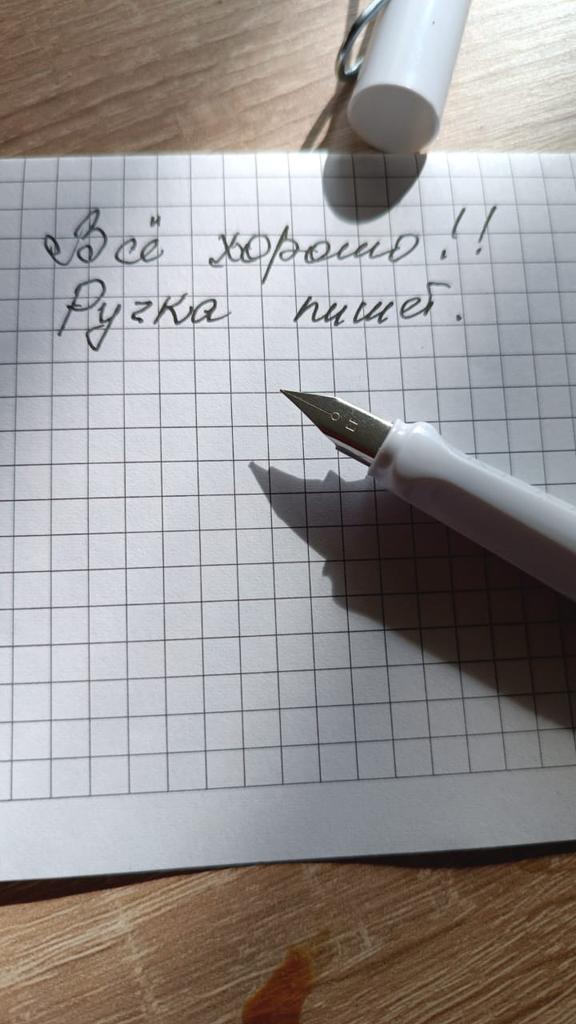 Всё хорошо!!
Ручка пишет.